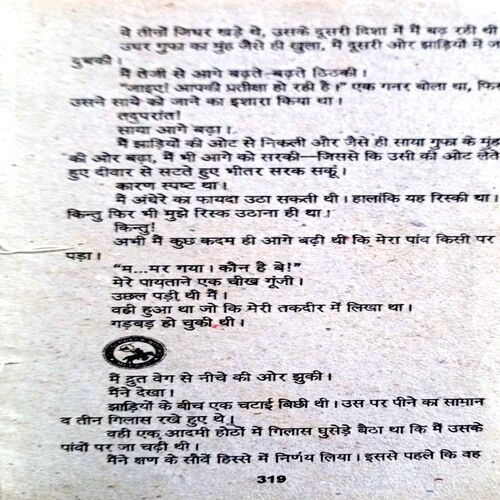 वे तीनों जिधर खड़े थे, उसके दूसरी दिशा में मैं बढ़ रही थी
उधर गुफा का मुंह जैसे ही खुला, मैं दूसरी ओर झाड़ियों में ज
दुबकी।
मैं तेजी से आगे बढ़ते-बढ़ते ठिठकी।
“जाइए! आपकी प्रतीक्षा हो रही है।” एक गनर बोला था, फिर
उसने साये को जाने का इशारा किया था।
तदुपरांत!
साया आगे बढ़ा।
मैं झाड़ियों की ओट से निकली और जैसे ही साया गुफा के मुंह
की ओर बढ़ा, मैं भी आगे को सरकी—जिससे कि उसी की ओट लेते
हुए दीवार से सटते हुए भीतर सरक सकूं।
कारण स्पष्ट था।
मैं अंधेरे का फायदा उठा सकती थी। हालांकि यह रिस्की था।
किन्तु फिर भी मुझे रिस्क उठाना ही था।
किन्तु!
अभी मैं कुछ कदम ही आगे बढ़ी थी कि मेरा पांव किसी पर
पड़ा।
“म...मर गया। कौन है बे!”
मेरे पायताने एक चीख गूंजी।
उछल पड़ी थी मैं।
वही हुआ था जो कि मेरी तकदीर में लिखा था।
गड़बड़ हो चुकी थी।
मैं द्रुत वेग से नीचे की ओर झुकी।
मैंने देखा।
झाड़ियों के बीच एक चटाई बिछी थी। उस पर पीने का सामान
व तीन गिलास रखे हुए थे।
वही एक आदमी होठों में गिलास घुसेड़े बैठा था कि मैं उसके
पांवों पर जा चढ़ी थी।
मैंने क्षण के सौवें हिस्से में निर्णय लिया। इससे पहले कि वह
319